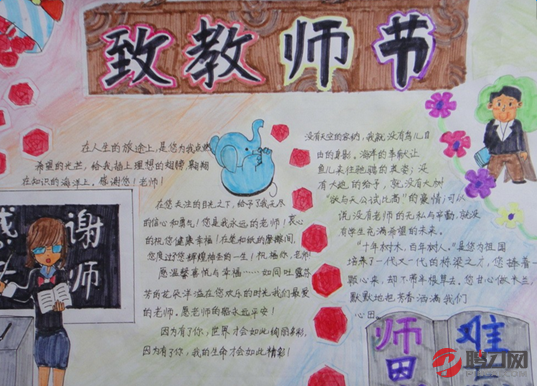 致教师节
在人生的旅途上,是您为我点燃
希望的光芒,给我插上理想的翅膀,翱翔
在知识的海洋上。感谢您!老师!
在您太阳的光之下,给予了我无尽
的信心和勇气!您是我永远的老师!衷心
的祝您健康幸福!在笔和纸的摩擦间,
您度过了您辉煌
的一生!祝福你,老师!
愿温馨喜悦与幸福……如同吐露芬
芳的花朵洋溢在您欢乐的时光我们最爱
的老师。愿老师的脸永远平安!
因为有了你,世界才会如此绚丽多彩,
因为有了你,我的生命才会如此精彩!
没有天空的容纳,我就没有鸟儿自
由的身影,海洋的奉献让
鱼儿来往驰骋的英姿;没
有大地的给予,就没有大树
“欲与天公试比高”的豪情;可以
说:没有老师的无私与辛勤,就没
有学生充满希望的未来。
“十年树木,百年树人。”是您为祖国
培养了一代又一代的栋梁之才,您捧着一
颗心来,却不带半根草去。您甘心做
默默地把芳香洒满我们
心田。
感谢
师
师难
恩
腾刃网